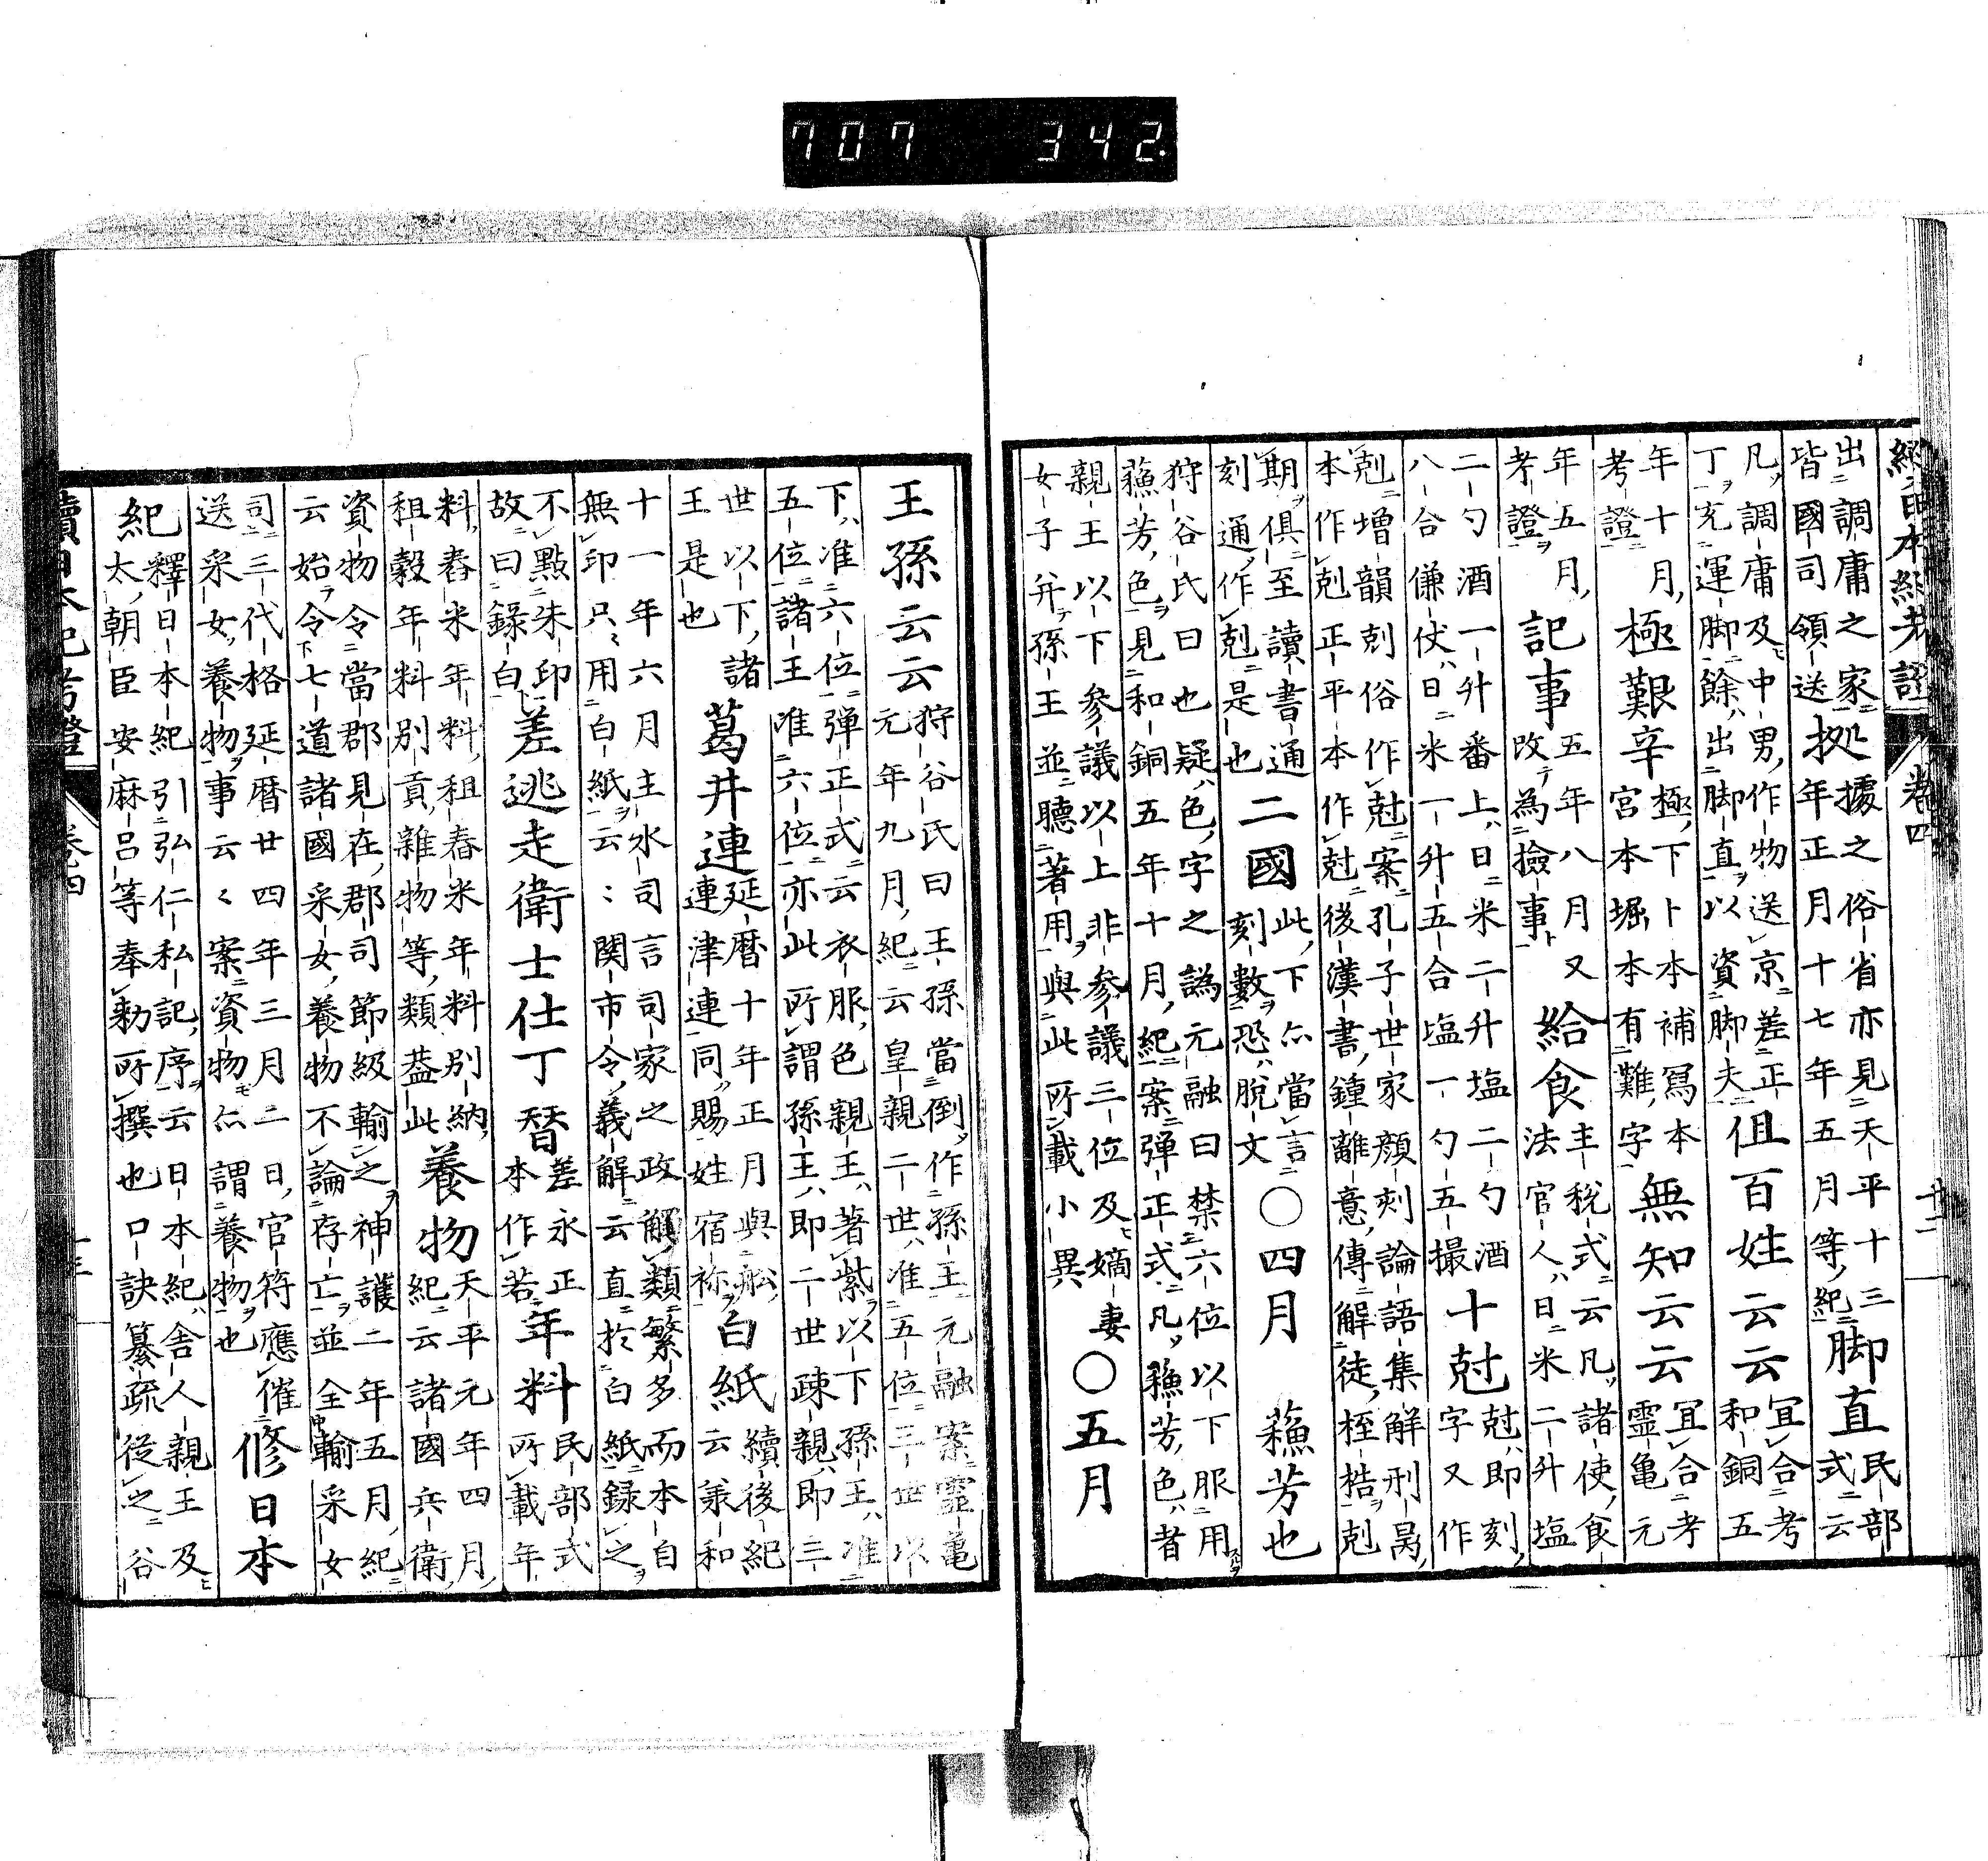 707 342.
續日本紀考證 卷四 十二
出調庸之家
皆國司領送
拠
據之俗省亦見天平十三
年正月十七年五月等紀
脚直
民部
式云
凡調庸及中男作物送京差正
丁充運脚餘出脚直以資脚夫
但百姓云云
冝合考
和銅五
年十月
考證
極艱辛
極下卜本補冩本
宮本堀本有難字
無知云云
冝合考
靈亀元
年五月
考證
記事
五年八月又
改為撿事
給食
主稅式云凡諸使食
法官人日米二升塩
二勺酒一升番上日米二升塩二勺酒
八合傔仗日米一升五合塩一勺五撮
十尅
尅即刻
字又作
剋増韻剋俗作尅案孔子世家顔刻論語集解刑昺
本作剋正平本作尅後漢書鍾離意傳解徒桎梏剋
期俱至讀書通
刻通作剋是也
二國
此下亦當言
刻數恐脫文
○四月
蘓芳也
狩谷氏曰也疑色字之譌元融曰禁六位以下服用
蘓芳色見和銅五年十月紀案弾正式凡蘓芳色者
親王以下参議以上非参議三位及嫡妻
女子并孫王並聽著用與此所載小異
○五月
王孫云云
狩谷氏曰王孫當倒作孫王元融案靈亀
元年九月紀云皇親二世准五位三世以
下准六位弾正式云衣服色親王著紫以下孫王准
五位諸王准六位亦此所謂孫王即二世疎親即三
世以下諸
王是也
葛井連
延暦十年正月與舩
連津連同賜姓宿祢
白紙
續後紀
云兼和
十一年六月主水司言司家之政觸類繁多而本自
無印只用白紙云〻関市令義解云直於白紙録之
不點朱印
故曰錄白
差逃走衛士仕丁替
差永正
本作若
年料
民部式
所載年
料舂米年料租舂米年料別納
租穀年料別貢雜物等類蓋此
養物
天平元年四月
紀云諸國兵衛
資物令當郡見在郡司節級輸之神護二年五月紀
云始令七道諸國采女養物不論存亡並全輸采女
司三代格延暦廿四年三月二日官符應催
送采女養物事云〻案資物亦謂養物也
修日本
紀
釋日本紀引弘仁私記序云日本紀舎人親王及
太朝臣安麻呂等奉勑所撰也口訣纂疏從之谷
續日本紀考證 卷四